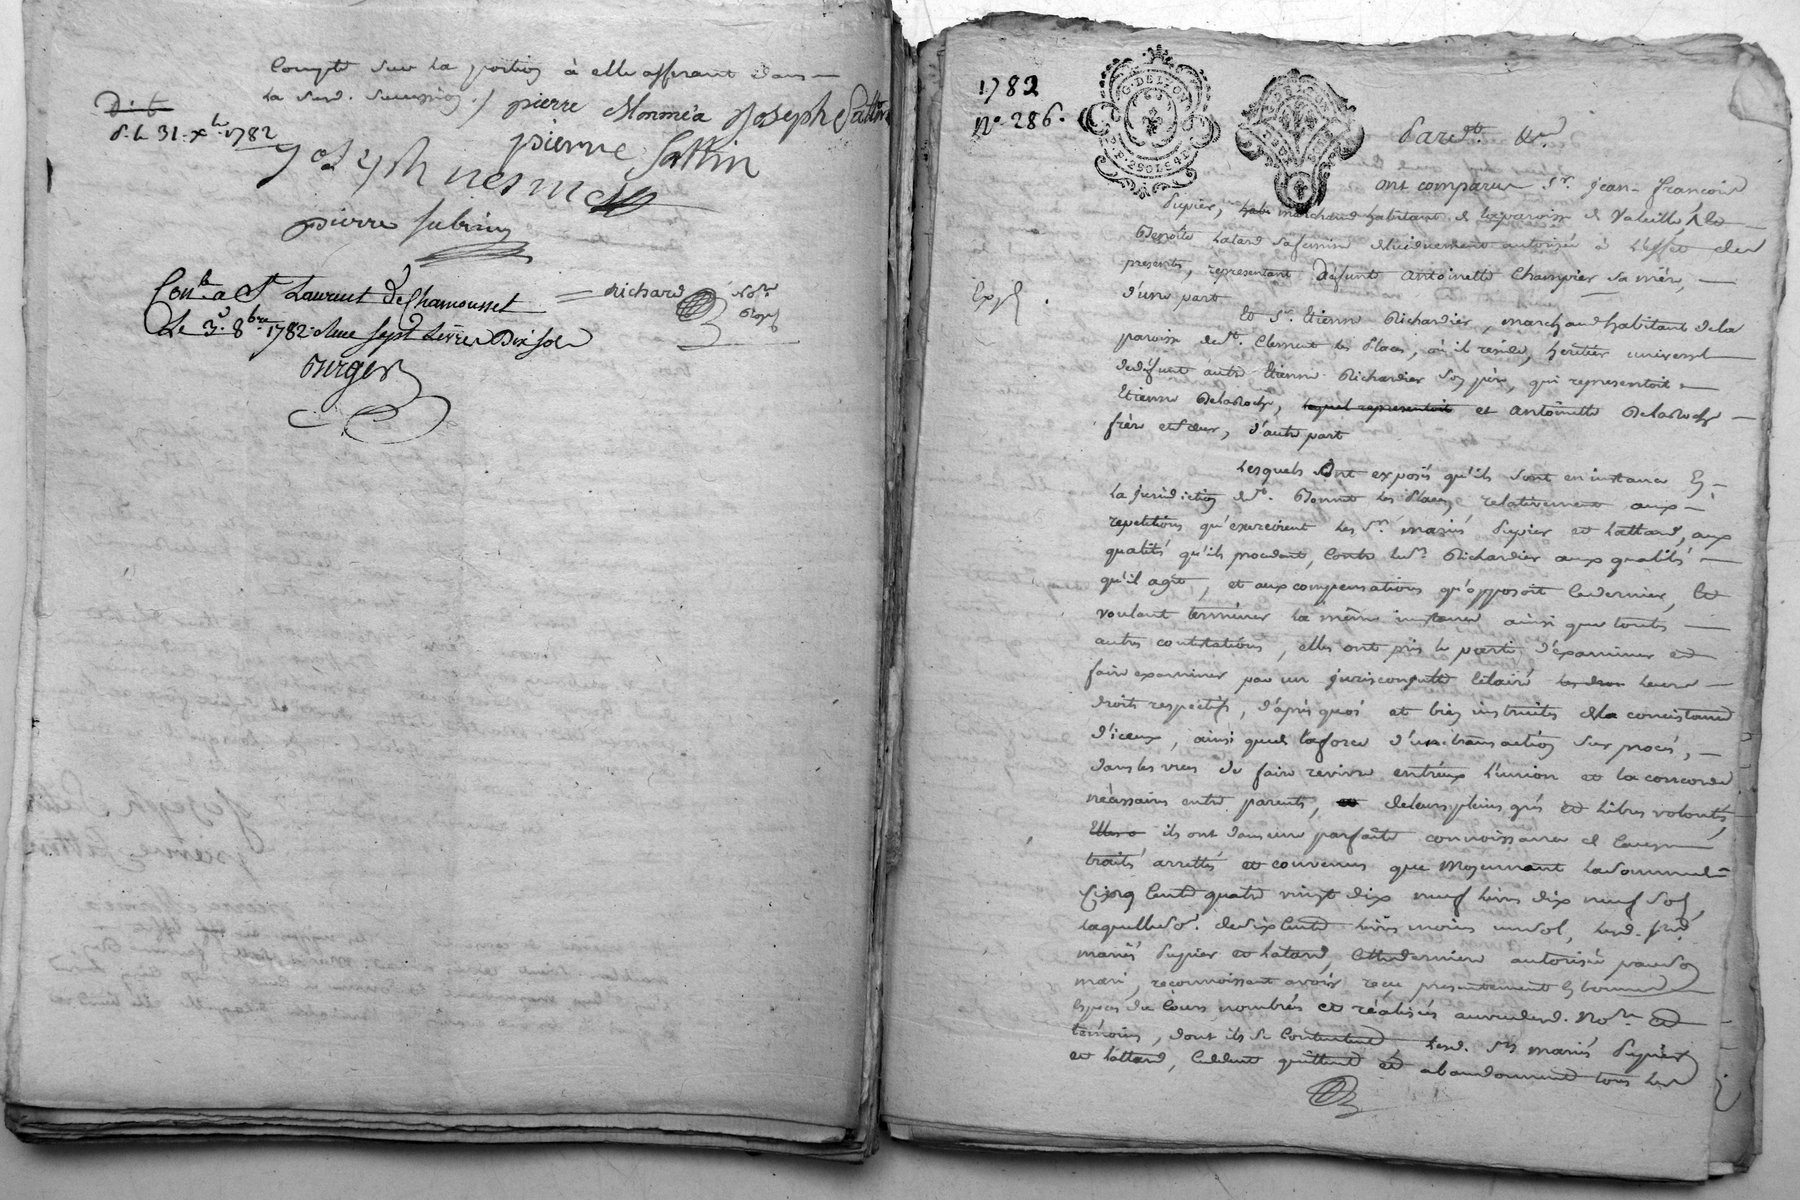 Compte sur la portion à elle afferant dans
la susd. succession ./.
pierre Monnéa Joseph Sattin
D. b.
d. L. 31. xbre. 1782
pierre Sattin
Joseph
pierre subrin
Conlé a St Laurent de Chamousset
Le 3e. 8bre 1782 Reçu sept Livres Dix sols
Berger
Richard Nore Royal
1782
No. 286.
G. DE LYON
P.P. 2 SOLS 4 D.
Pardt. &c.
ont comparu Sr. Jean-François
Pupier, marchand habitant de la paroisse de Valeille, & De
Benoite Latard sa femme de lui duement autorisée à l'effet des
presentes, representant defunte antoinette Champier sa mère,
d'une part
Exp.d
Et Sr. Etienne Richardier, marchand habitant de la
paroisse de St. Clement les Places, où il reside, heritier universel
de defunt autre Etienne Richardier son père, qui representoit
Etienne Delaroche, lequel representoit et antoinette Delaroche
frère et sœur, d'autre part
Lesquels Ont exposés qu'ils sont en instance En
la juridiction de St. Bonnet les Places, relativement aux
repetitions qu'exercoient les Srs. mariés Pupier et Lattard, aux
qualités qu'ils procedent, contre led. Sr. Richardier aux qualités
qu'il agit, et aux compensations qu'opposoit ce dernier, Et
voulant terminer la même instance ainsi que toutes
autres contestations, elles ont pris le parti d'examiner et
faire examiner par un jurisconsulte Eclairé les dron leurs
droits respectifs, d'après quoi et bien instruits de la concistance
d'iceux, ainsi que de la force d'une transaction sur procès,
dans les vues de faire revivre entr'eux l'union et la concorde
nécessaires entre parents, et de leurs pleins grés et libres volontés,
Elles o ils ont dans une parfaite connoissance de cause
traités arrettés et convenus que Moyennant la somme de
Cinq Cents quatre vingt dix neuf livres dix neuf sols,
laquelle de six Cents Livres moins un sol, lesd. Srs.
mariés Pupier et Latard, cette derniere autorisée par son
mari, reconnoissent avoir reçu presentement En bonnes
Especes du Cours nombrées et réalisées au vu dud. Nore. et
témoins, dont ils se Contentent, Lesd. Srs mariés Pupier
et Lattard, Cedent quittent et abandonnent tous les